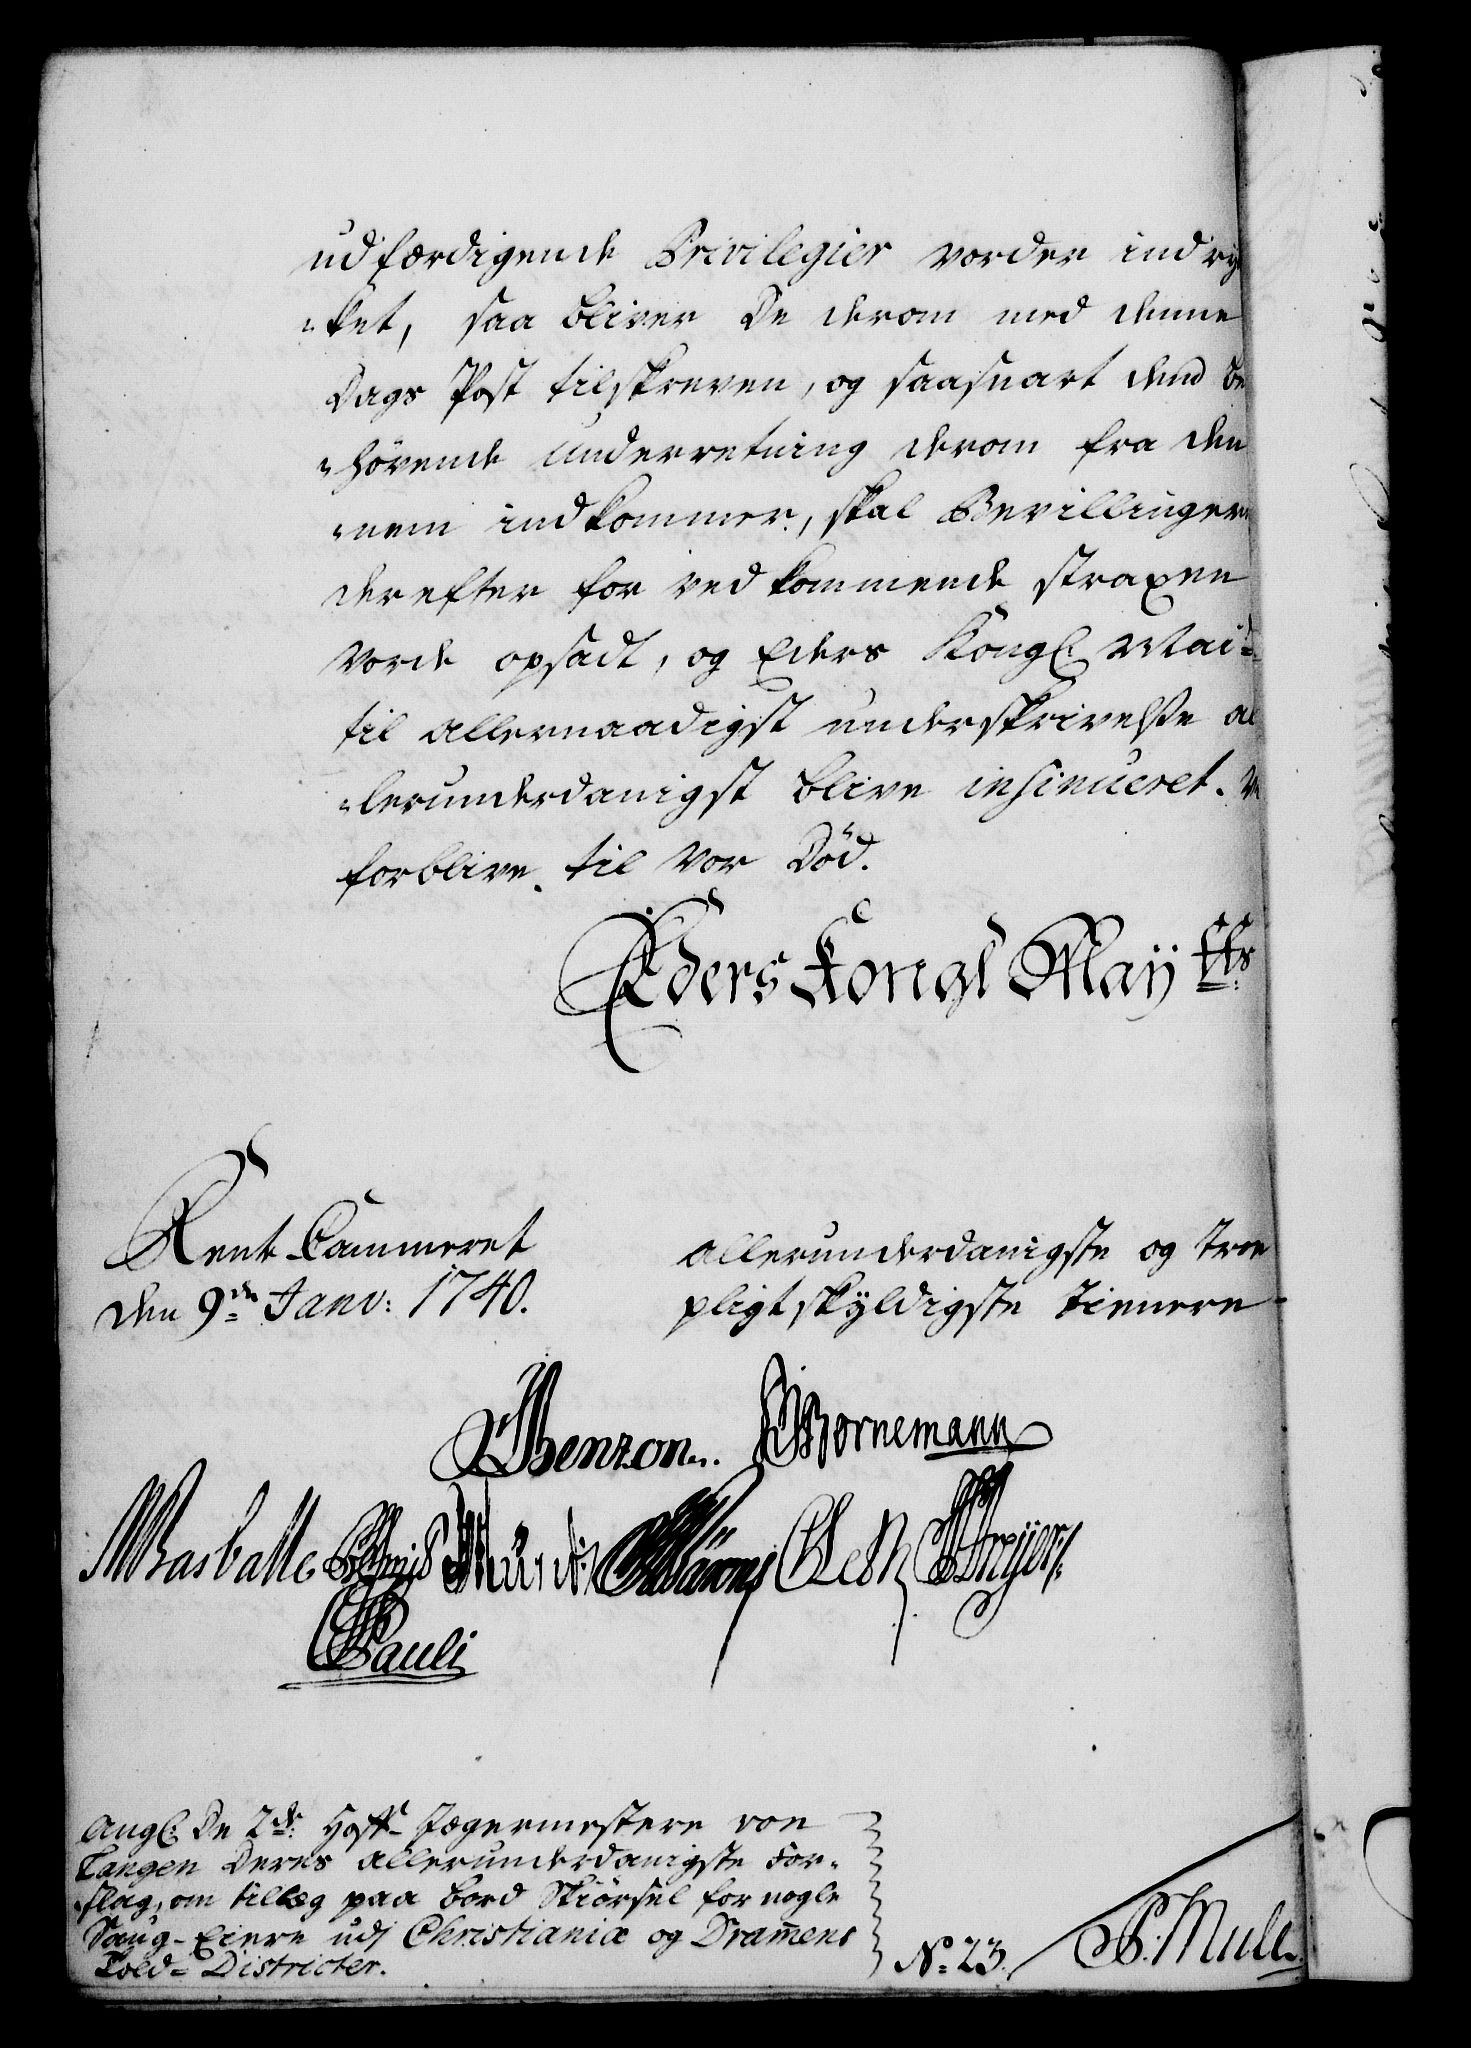 udfærdigende Privilegier vorder indry
-ket, saa bliver De derom med denne
Dags Post tilskreven, og saasnart dend be
-hörende Underretning derom fra den
-nem indkommer, skal Bevillingern
derefter for vedkommende straxen
vorde opsadt, og Eders Kongl: Mait
til allernaadigst underskrivelse al
-lerunderdanigst blive insinueret. Vi
forblive til vor Död.
Eders Kongl Maytts
Rente Cammeret
den 9de Janv: 1740.
allerunderdanigste og troe
pligtskyldigste tienere
Benzon. Bornemann
Basballe Münk Leth Dreyer
Pauli
Angl: De 2de Hoff-Jægermestere von
Langen Deres allerunderdanigste For-
slag, om tillæg paa bord Skiörsel for nogle
Saug-Eiere udj Christianiæ og Dramens
Told-Districter.
No: 23.
P. Mull